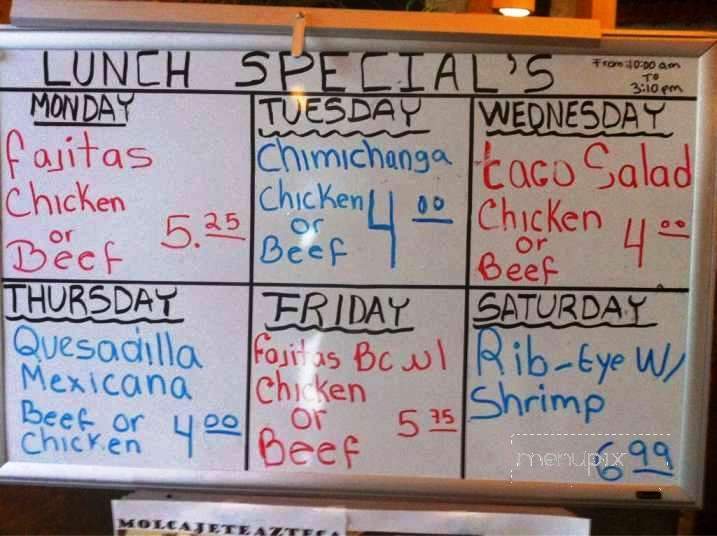 LUNCH SPECIAL'S
From 10:00 am
TO
3:10 pm
MONDAY
Fajitas
Chicken
or
Beef
5.25
TUESDAY
Chimichanga
Chicken
or
Beef
4 00
WEDNESDAY
taco Salad
Chicken
or
Beef
4 00
THURSDAY
Quesadilla
Mexicana
Beef or
Chicken
4 00
FRIDAY
Fajitas Bowl
Chicken
or
Beef
5 75
SATURDAY
Rib-Eye W/
Shrimp
6 99
menupix
MOLCAJETE AZTECA